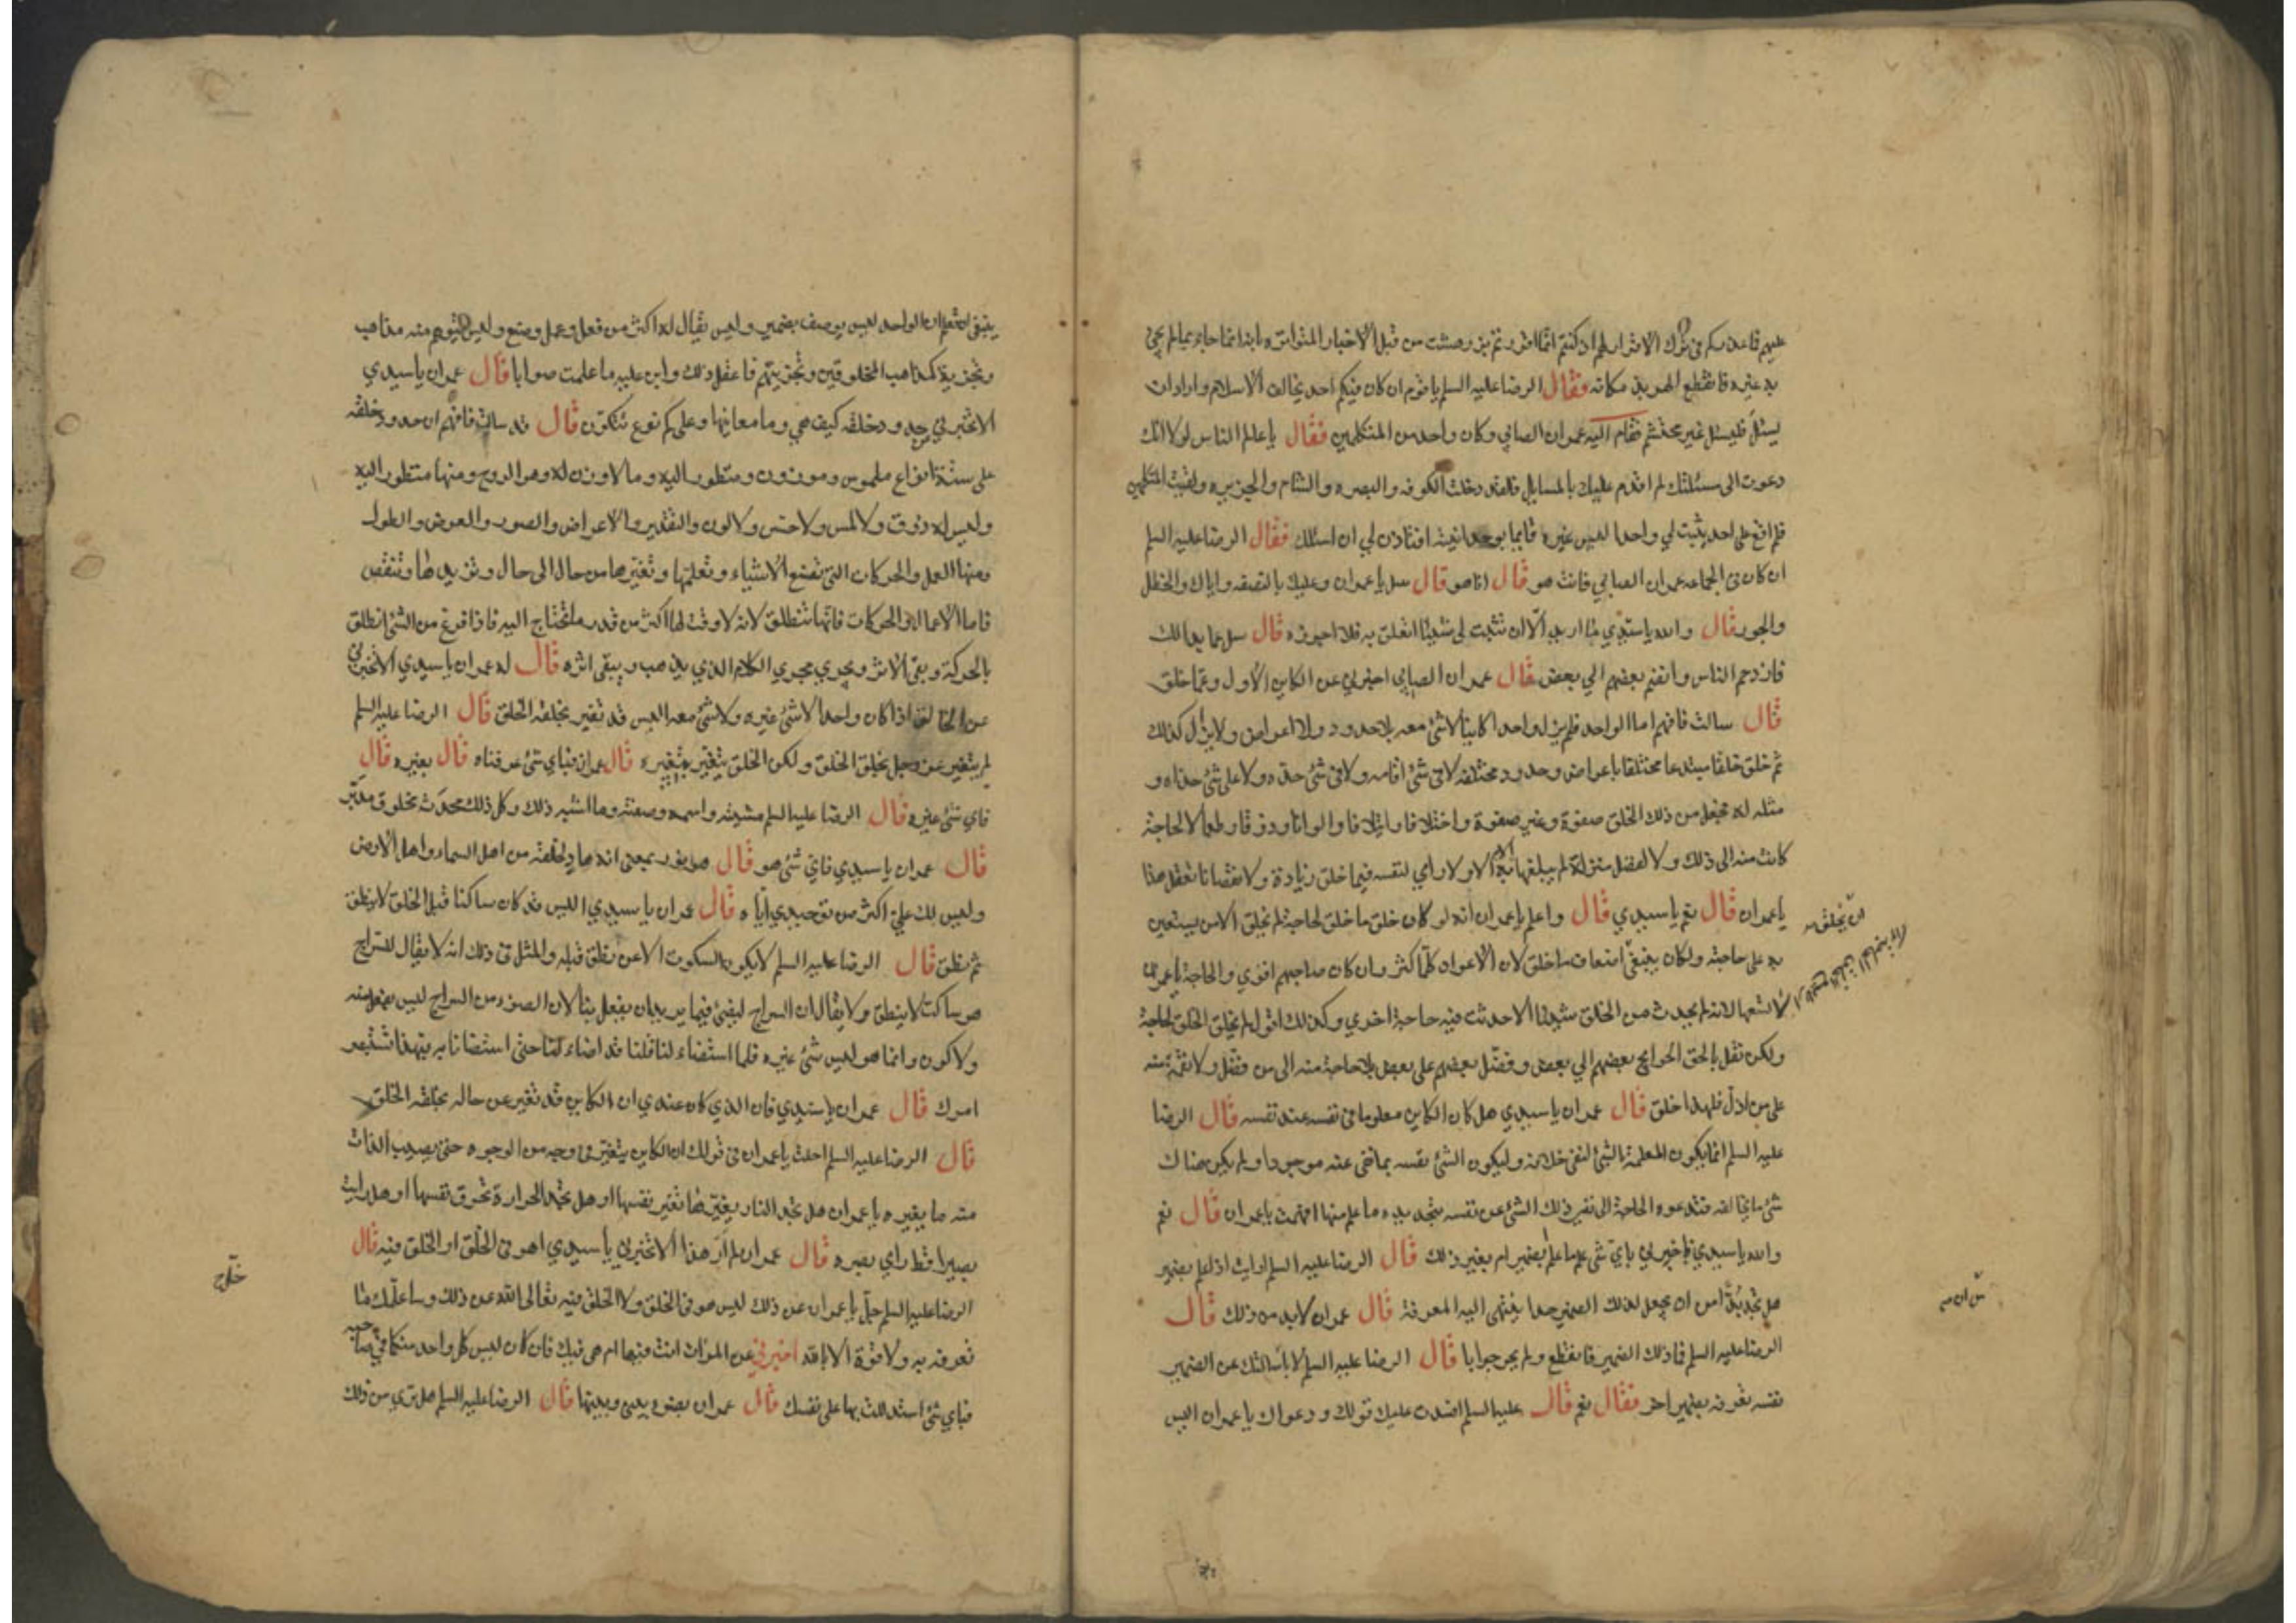 عليهم فاعذركم في ترك الاقرار لهم اذ كنتم انما اقررتم بزردهشت من قبل الاخبار المتواتره بانه انما جاء بما لم يجئ
به غيره فانقطع الهربذ مكانه فقال الرضا عليه السلم يا قوم ان كان فيكم احد يخالف الاسلام واراد ان
يسئل فليسئل غير محتشم فقام اليه عمران الصابي وكان واحد من المتكلمين فقال يا عالم الناس لولا انك
دعوت الى مسئلتك لم اقدم عليك بالمسايل فلقد دخلت الكوفه والبصره والشام والجزيره ولقيت المتكلمين
فلم اقع على احد يثبت لي واحدا ليس غيره قايما بوحدانيته افتاذن لي ان اسئلك فقال الرضا عليه السلم
ان كان في الجماعه عمران الصابي فانت هو قال انا هو قال سل يا عمران وعليك بالنصفه واياك والخطل
والجور قال والله يا سيدي ما اريد الا ان تثبت لي شيئا اتعلق به فلا اجوزه قال سل عما بدا لك
فازدحم الناس وانضم بعضهم الي بعض فقال عمران الصابي اخبرني عن الكاين الاول وعما خلق
قال سالت فافهم اما الواحد فلم يزل واحدا كاينا لا شئ معه بلا حدود ولا اعراض ولا يزال كذلك
ثم خلق خلقا مبتدعا مختلفا باعراض وحدود مختلفه لا في شئ اقامه ولا في شئ حده ولا على شئ حذاه و
مثله له فجعل من ذلك الخلق صفوة وغير صفوة واختلافا وايتلافا والوانا وذوقا وطعما لا لحاجة
كانت منه الى ذلك ولا لفضل منزلة لم يبلغها الا به ولا راي لنفسه فيما خلق زيادة ولا نقصانا تعقل هذا
يا عمران قال نعم يا سيدي قال واعلم يا عمران انه لو كان خلق ما خلق لحاجة لم يخلق الا من يستعين
به على حاجته ولكان ينبغي اضعاف ما خلق لان الاعوان كلما كثروا كان صاحبهم اقوي والحاجة يا عمران
لا تسعها لانه لم يحدث من الخلق شيئا الا حدثت فيه حاجة اخري وكذلك اقول لم يخلق الخلق لحاجة
ولكن نقل بالخلق الحوايج بعضهم الي بعض وفضل بعضهم على بعض بلا حاجة منه الى من فضل ولا نقمة منه
على من اذل فلهذا خلق قال عمران يا سيدي هل كان الكاين معلوما في نفسه عند نفسه قال الرضا
عليه السلم انما يكون المعلمة بالشئ لنفي خلافه وليكون الشئ نفسه بما نفي عنه موجودا ولم يكن هناك
شئ يخالفه فتدعوه الحاجة الى نفي ذلك الشئ عن نفسه بتحديد ما علم منها افهمت يا عمران قال نعم
والله يا سيدي فاخبرني باي شئ علم ما علم ابضمير ام بغير ذلك قال الرضا عليه السلم ارايت اذا علم بضمير
هل تجد بدا من ان يجعل لذلك الضمير حدا ينتهي اليه المعرفة قال عمران لا بد من ذلك قال
الرضا عليه السلم فما ذلك الضمير فانقطع ولم يحر جوابا قال الرضا عليه السلم لا باس ان سالتك عن الضمير
نفسه تعرفه بضمير اخر فقال نعم قال عليه السلم افسدت عليك قولك ودعواك يا عمران اليس
ينبغي ان تعلم ان الواحد ليس يوصف بضمير وليس يقال له اكثر من فعل وعمل وصنع وليس يتوهم منه مذاهب
وتجزية كمذاهب المخلوقين وتجزيتهم فاعقل ذلك وابن عليه ما علمت صوابا قال عمران يا سيدي
الا تخبرني عن حدود خلقه كيف هي وما معانيها وعلى كم نوع تتكون قال قد سالت فافهم ان حدود خلقه
على ستة انواع ملموس وموزون ومنظور اليه وما لا وزن له وهو الروح ومنها منظور اليه
وليس له ذوق ولا لمس ولا حس ولا لون والتقدير والاعراض والصور والعرض والطول
ومنها العمل والحركات التي تصنع الاشياء وتعلمها وتغيرها من حال الى حال وتزيدها وتنقص
فاما الاعمال والحركات فانها تنطلق لانه لا وقت لها اكثر من قدر ما تحتاج اليه فاذا فرغ من الشئ انطلق
بالحركة وبقي الاثر ويجري مجري الكلام الذي يذهب ويبقى اثره قال له عمران يا سيدي الا تخبرني
عن الخالق اذا كان واحدا لا شئ غيره ولا شئ معه اليس قد تغير بخلقه الخلق قال الرضا عليه السلم
لم يتغير عز وجل بخلق الخلق ولكن الخلق يتغير بتغييره قال عمران فباي شئ عرفناه قال بغيره قال
فاي شئ غيره قال الرضا عليه السلم مشيته واسمه وصفته وما اشبه ذلك وكل ذلك محدث مخلوق مدبر
قال عمران يا سيدي فاي شئ هو قال هو نور بمعنى انه هاد لخلقه من اهل السماء واهل الارض
وليس لك علي اكثر من توحيدي اياه قال عمران يا سيدي اليس قد كان ساكتا قبل الخلق لا ينطق
ثم نطق قال الرضا عليه السلم لا يكون السكوت الا عن نطق قبله والمثل في ذلك انه لا يقال للسراج
هو ساكت لا ينطق ولا يقال ان السراج ليضئ فيما يريد ان يفعل بنا لان الضوء من السراج ليس بفعل منه
ولا كون وانما هو ليس شئ غيره فلما استضاء لنا قلنا قد اضاء لنا حتى استضانا به فبهذا تستبصر
امرك قال عمران يا سيدي فان الذي كان عندي ان الكاين قد تغير عن حاله بخلقه الخلق
قال الرضا عليه السلم احلت يا عمران في قولك ان الكاين يتغير في وجه من الوجوه حتى يصيب الذات
منه ما يغيره يا عمران هل تجد النار يغيرها تغير نفسها او هل تجد الحرارة تحرق نفسها او هل رايت
بصيرا قط راي بصره قال عمران لم ار هذا الا تخبرني يا سيدي اهو في الخلق او الخلق فيه قال
الرضا عليه السلم جل يا عمران عن ذلك ليس هو في الخلق ولا الخلق فيه تعالى الله عن ذلك وساعلمك ما
تعرفه به ولا قوة الا بالله اخبرني عن المراة انت فيها ام هي فيك فان كان ليس كل واحد منكما في صاحبه
فباي شئ استدللت بها على نفسك قال عمران بضوء بيني وبينها قال الرضا عليه السلم هل تري من ذلك